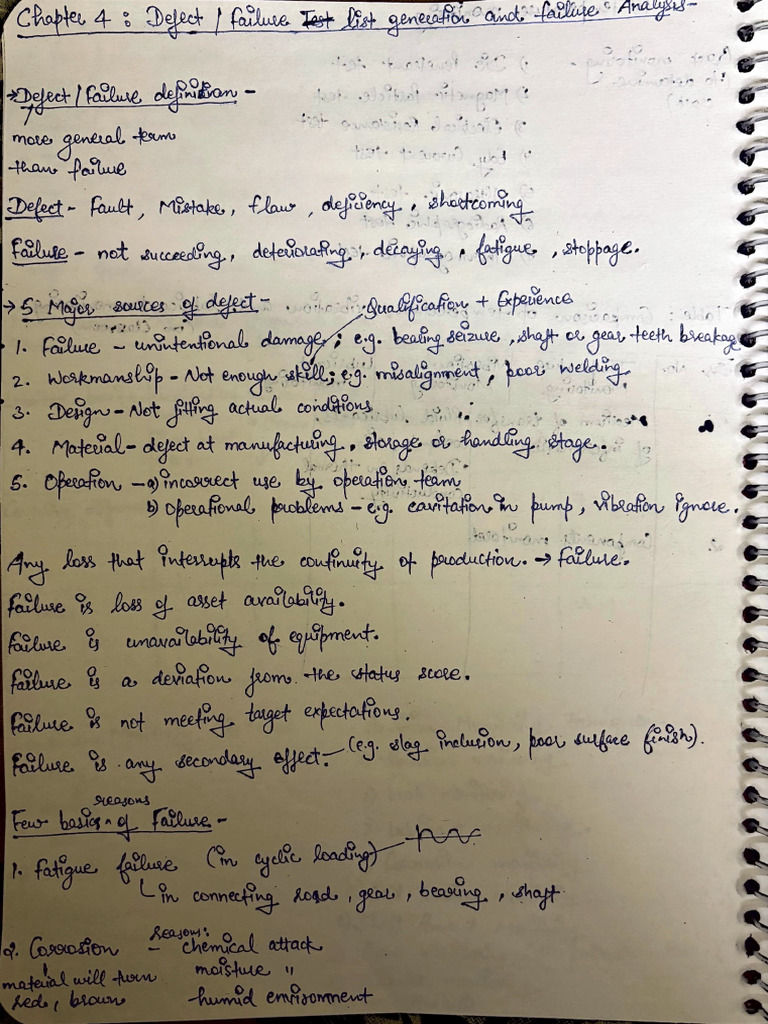 Chapter 4 : Defect / Failure list generation and failure Analysis-
→ Defect / Failure definition -
more general term
than failure
Defect - Fault, Mistake, flaw, deficiency, shortcoming
Failure - not succeeding, deteriorating, decaying, fatigue, stoppage.
→ 5 Major sources of defect - Qualification + Experience
1. Failure - unintentional damage; e.g. bearing seizure, shaft or gear teeth breakage
2. Workmanship - Not enough skill; e.g. misalignment, poor welding.
3. Design - Not fitting actual conditions
4. Material - defect at manufacturing, storage or handling stage.
5. Operation - a) incorrect use by operation team
b) Operational problems - e.g. cavitation in pump, vibration ignore.
Any loss that interrupts the continuity of production. → Failure.
Failure is loss of asset availability.
Failure is unavailability of equipment.
Failure is a deviation from the status score.
Failure is not meeting target expectations.
Failure is any secondary effect. - (e.g. slag inclusion, poor surface finish).
Few basic reasons of Failure -
1. Fatigue failure (in cyclic loading)
in connecting road, gear, bearing, shaft
2. Corrosion - reason: chemical attack
material will turn moisture "
red, brown humid enviornment